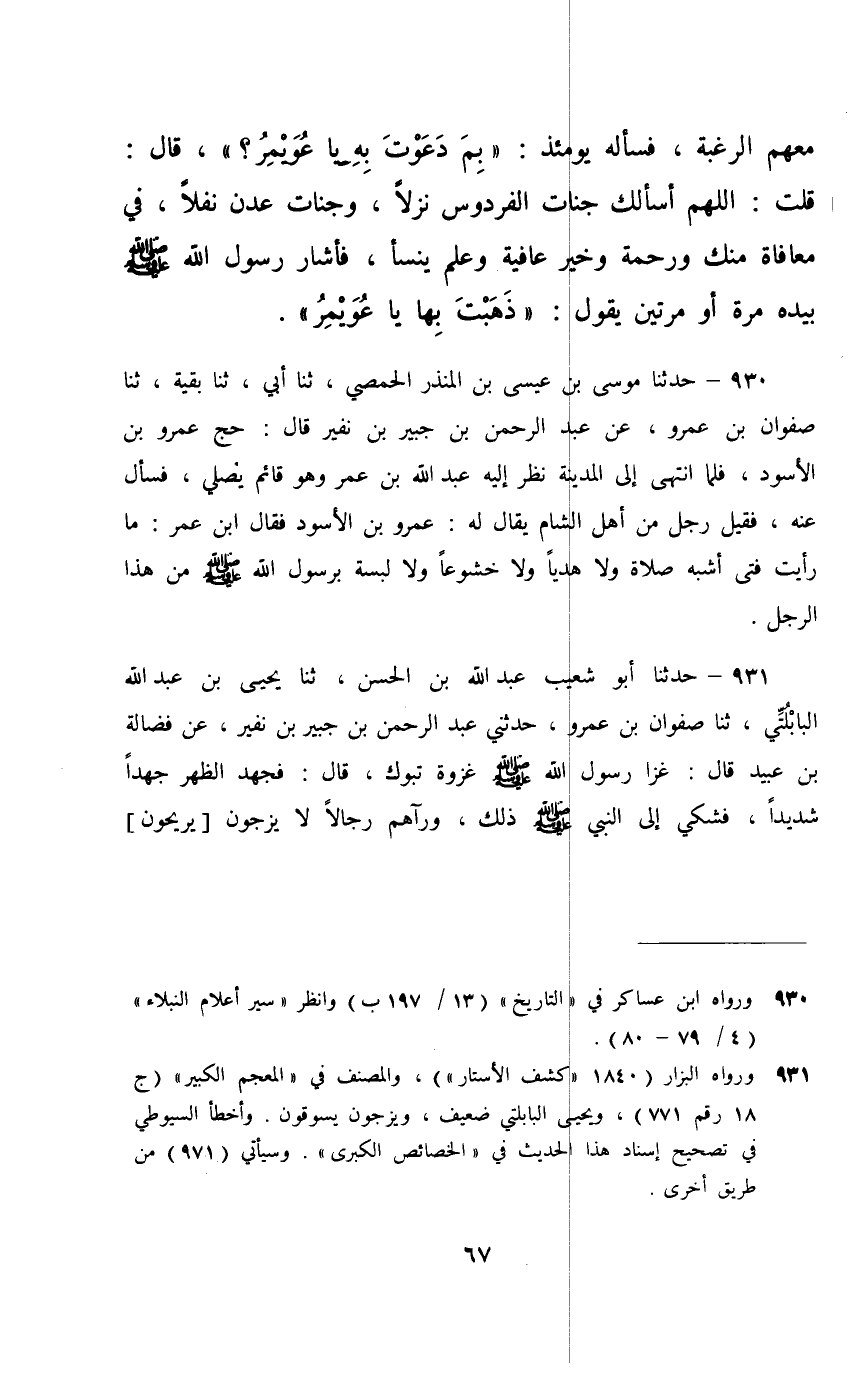 معهم الرغبة ، فسأله يومئذ : « بِمَ دَعَوْتَ بِهِ يا عُوَيْمِرُ ؟ » ، قال :
قلت : اللهم أسألك جنات الفردوس نزلاً ، وجنات عدن نفلاً ، في
معافاة منك ورحمة وخير عافية وعلم ينسأ ، فأشار رسول الله ﷺ
بيده مرة أو مرتين يقول : « ذَهَبْتَ بِها يا عُوَيْمِرُ » .
٩٣٠ – حدثنا موسى بن عيسى بن المنذر الحمصي ، ثنا أبي ، ثنا بقية ، ثنا
صفوان بن عمرو ، عن عبد الرحمن بن جبير بن نفير قال : حج عمرو بن
الأسود ، فلما انتهى إلى المدينة نظر إليه عبد الله بن عمر وهو قائم يصلي ، فسأل
عنه ، فقيل رجل من أهل الشام يقال له : عمرو بن الأسود فقال ابن عمر : ما
رأيت فتى أشبه صلاة ولا هدياً ولا خشوعاً ولا لبسة برسول الله ﷺ من هذا
الرجل .
٩٣١ – حدثنا أبو شعيب عبد الله بن الحسن ، ثنا يحيى بن عبد الله
البابْلُتِّي ، ثنا صفوان بن عمرو ، حدثني عبد الرحمن بن جبير بن نفير ، عن فضالة
بن عبيد قال : غزا رسول الله ﷺ غزوة تبوك ، قال : فجهد الظهر جهداً
شديداً ، فشكي إلى النبي ﷺ ذلك ، ورآهم رجالاً لا يزجون [ يريحون ]
٩٣٠ ورواه ابن عساكر في « التاريخ » ( ١٣ / ١٩٧ ب ) وانظر « سير أعلام النبلاء »
( ٤ / ٧٩ – ٨٠ ) .
٩٣١ ورواه البزار ( ١٨٤٠ « كشف الأستار » ) ، والمصنف في « المعجم الكبير » ( ج
١٨ رقم ٧٧١ ) ، ويحيى البابلتي ضعيف ، ويزجون يسوقون . وأخطأ السيوطي
في تصحيح إسناد هذا الحديث في « الخصائص الكبرى » . وسيأتي ( ٩٧١ ) من
طريق أخرى .
٦٧